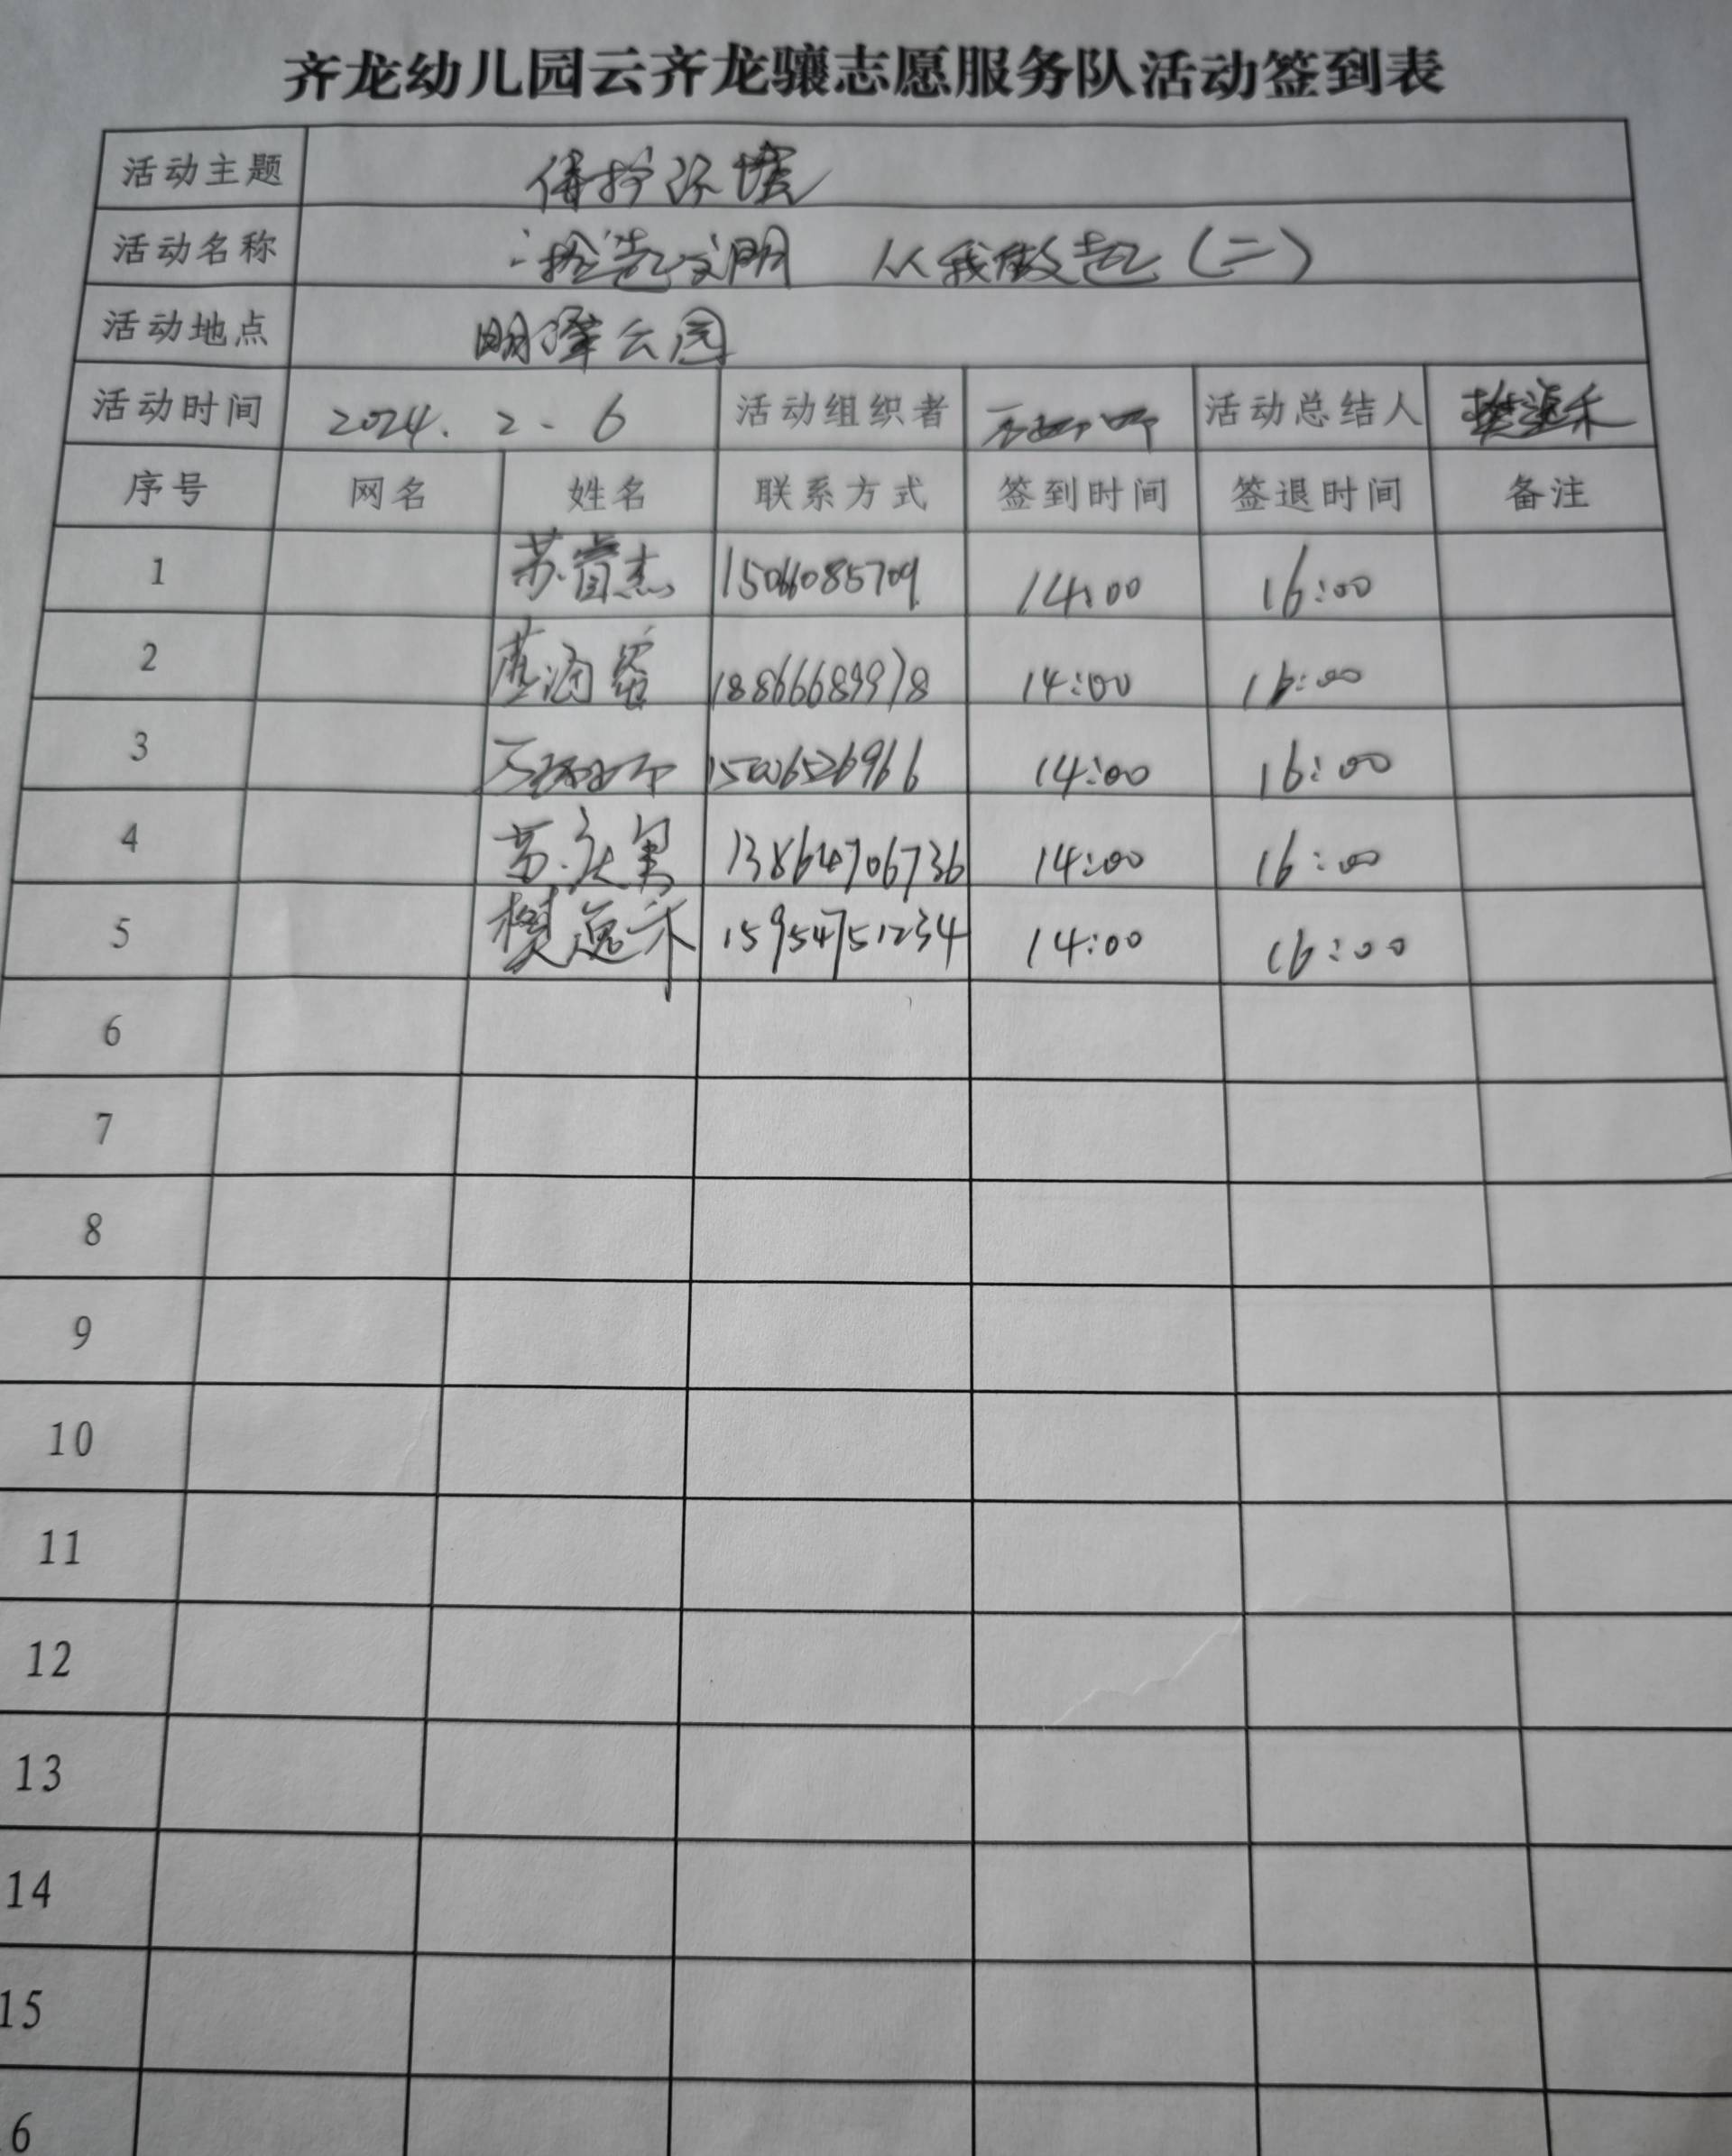 齐龙幼儿园云齐龙骧志愿服务队活动签到表
活动主题 保护环境
活动名称 捡起文明 从我做起(二)
活动地点 明潭公园
活动时间 2024. 2. 6 活动组织者 活动总结人 樊逸禾
序号 网名 姓名 联系方式 签到时间 签退时间 备注
1 苏睿杰 14:00 16:00
2 18866689978 14:00 16:00
3 14:00 16:00
4 13864706736 14:00 16:00
5 樊逸禾 15954751234 14:00 16:00
6
7
8
9
10
11
12
13
14
15
6